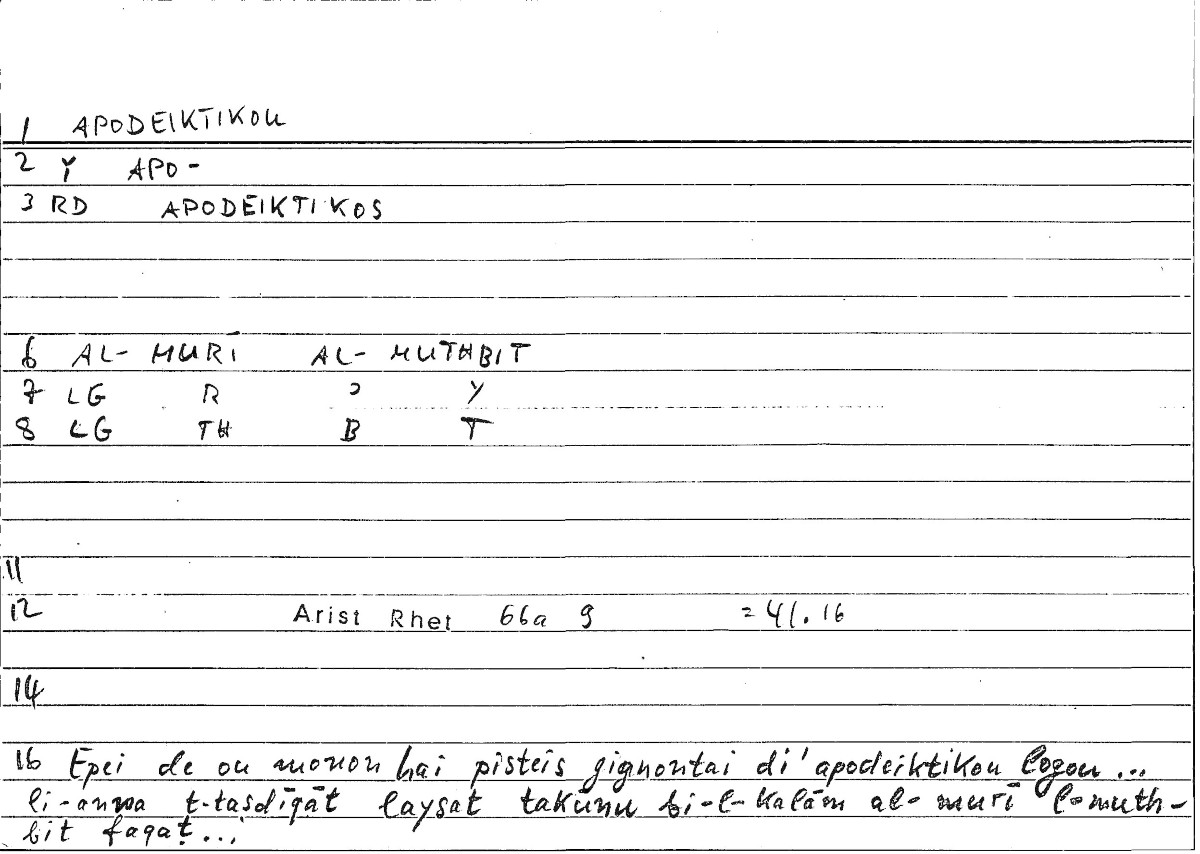 1 APODEIKTIKOU
2 Y APO-
3 RD APODEIKTIKOS
6 AL- MURĪ AL- MUTHBIT
7 LG R ɔ Y
8 LG TH B T
11
12 Arist Rhet 66a 9 = 41.16
14
16 Epei de ou monon hai pisteis gignontai di' apodeiktikou logou...
li-anna t-tasdīqāt laysat takūnu bi-l-kalām al-murī l-muth-
bit faqaṭ...